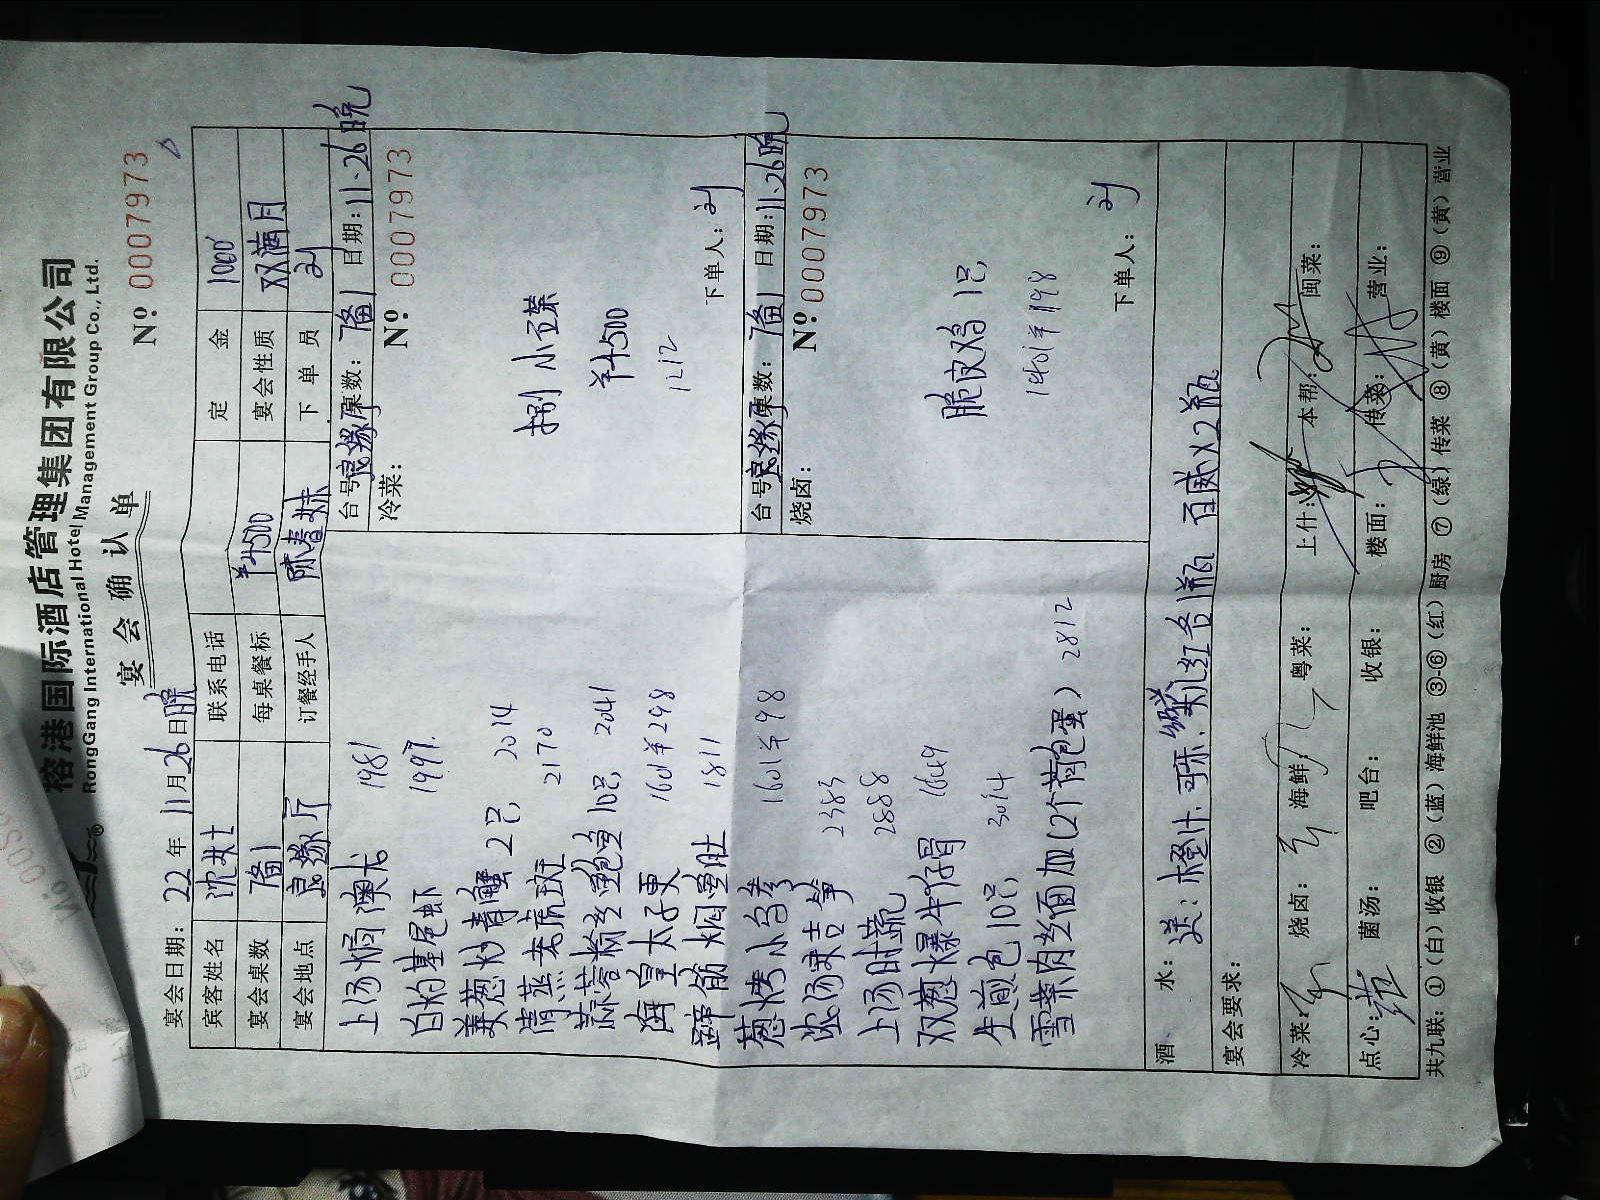 榕港国际酒店管理集团有限公司
RongGang International Hotel Management Group Co., Ltd.
宴会确认单
№ 0007973
宴会日期：22年11月26日晚
宾客姓名 沈女士 联系电话 定金 1000
宴会桌数 1备1 每桌餐标 ¥4500 宴会性质 双满月
宴会地点 良缘厅 订餐经手人 陈春妹 下单员 刘
上汤焗澳龙 1981
白灼基尾虾 1997
姜葱炒青蟹2只 2014
清蒸老虎斑 2170
蒜蓉粉丝鲍鱼10只 2041
海皇太子更 1601¥298
蹄筋焖鱼肚 1811
葱烤小乌参 1601¥98
浓汤末吉笋 2383
上汤时蔬 2888
双葱爆牛仔骨 1649
生煎包10只 3014
雪菜肉丝面加(2个荷包蛋) 2812
台号：良缘厅 桌数：1备1 日期：11.26晚
冷菜： № 0007973
捌小卫菜
¥4500
1212
下单人：刘
台号：良缘厅 桌数：1备1 日期：11.26晚
烧卤： № 0007973
脆皮鸡1只
1401¥198
下单人：刘
酒水：送：橙汁.可乐.雪碧.红各1瓶 百威×2瓶
宴会要求：
冷菜： 烧卤： 海鲜： 粤菜： 上什： 本帮： 闽菜：
点心： 菌汤： 吧台： 收银： 楼面： 传菜： 营业：
共九联：①（白）收银 ②（蓝）海鲜池 ③-⑥（红）厨房 ⑦（绿）传菜 ⑧（黄）楼面 ⑨（黄）营业